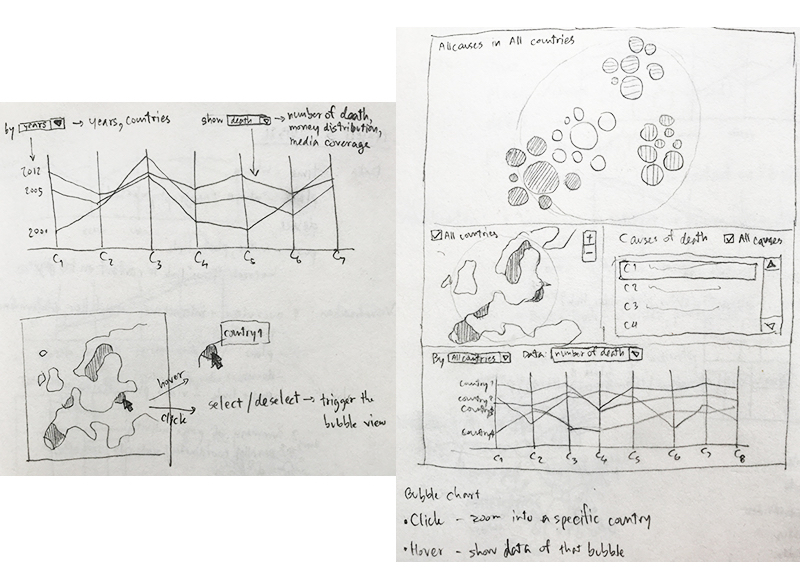 by years → years, countries
show death → number of death,
money distribution,
media coverage
2012
2005
2001
C1 C2 C3 C4 C5 C6 C7
country 1
hover
click
select/deselect → trigger the
bubble view
All causes in All countries
All countries
+
-
Causes of death All causes
C1
C2
C3
C4
By All countries Data: number of death
country 1
country 2
country 3
country 4
C1 C2 C3 C4 C5 C6 C7 C8
Bubble chart
• Click - zoom into a specific country
• Hover - show data of that bubble